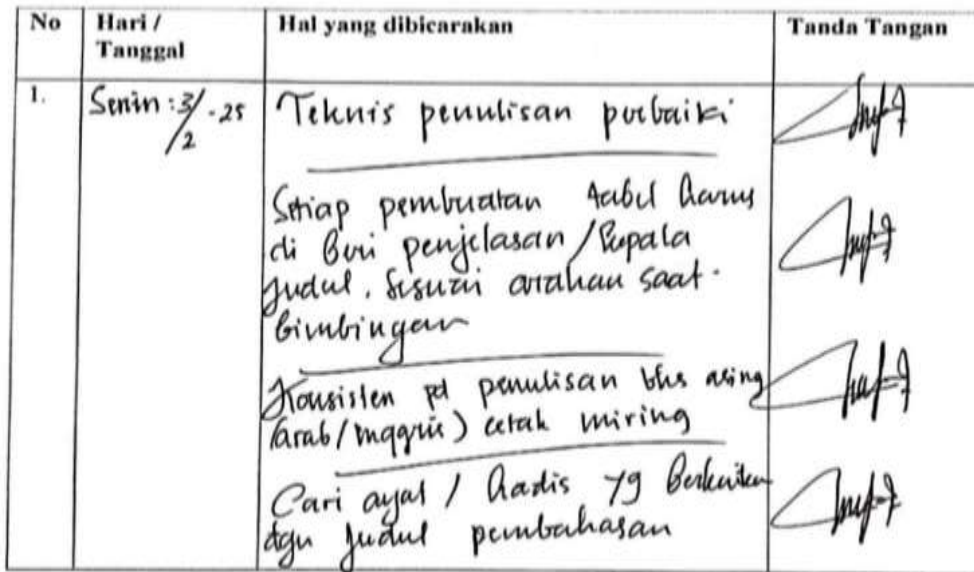 No Hari / Tanggal Hal yang dibicarakan Tanda Tangan
1. Senin : 3/2 - 25 Teknis penulisan perbaiki
Setiap pembuatan tabel harus
di Beri penjelasan / Kepala
judul. Sesuai arahan saat
bimbingan
Konsisten pd penulisan bhs asing
(arab/inggris) cetak miring
Cari ayat / hadis yg Berkaitan
dgn judul pembahasan